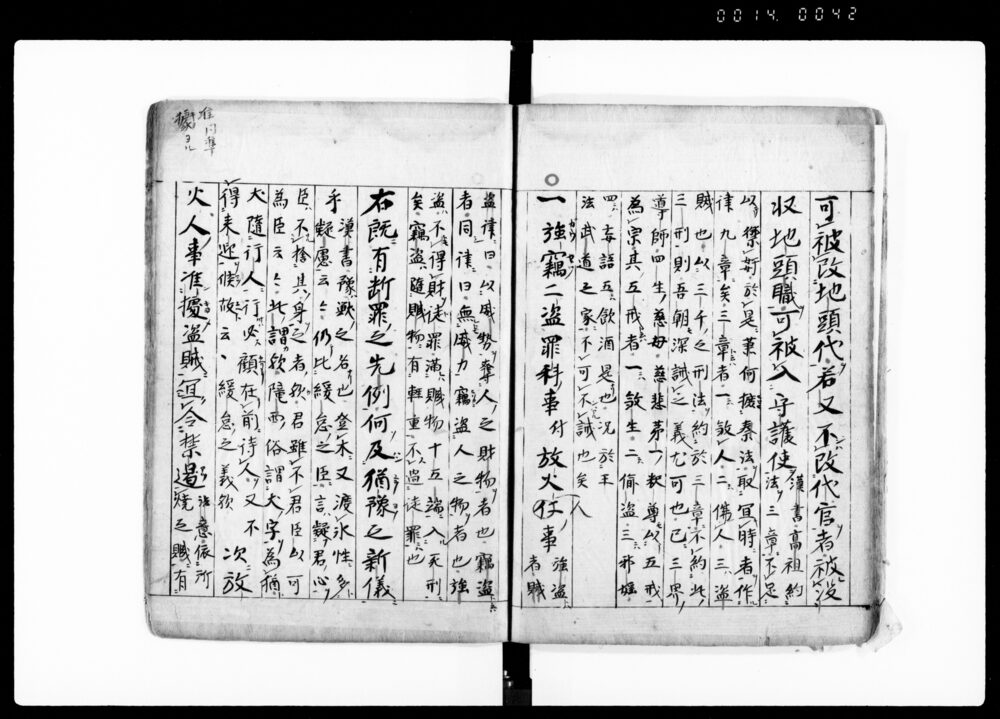 0014 0042
可被改地頭代若又不改代官者被没
収地頭職可被入守護使 漢書高祖約
法三章不足
以禦姧於是蕭何攈秦法取宜時者作
律九章矣三章者一敦人二傷人三盗
賊也以三千之刑法約於三章不約此
三刑則吾朝深誡之義尤可也已三界
導師四生慈母慈悲第一釈尊以五戒
為宗其五戒者一敦生二偸盗三邪婬
四妄語五飲酒是也況於王
法武道之家不可不誡也矣
一強竊二盗罪科事付放火人事 強盗
者賊
盗律曰以威勢奪人之財物者也竊盗
者同律曰無威力竊盗人之物者也強
盗不得財徒罪滿贓物十五端入死刑
矣竊盗隨贓物有輕重不過徒罪也
右既有断罪之先例何及猶豫之新儀
乎 漢書豫猷之名也登木又渡氷性多
疑慮云々仍比緩怠之臣言疑君心
臣不捨其身之者欤君雖不君臣以可
為臣云々此謂欤隴西俗謂犬字為猶
犬隨行人行必顧在前待人又不
得来迎候故云緩怠之義欤 次放
火人事准據盗賊宜令禁遏 法意依所
燒之贓有
准同準
據ヨル